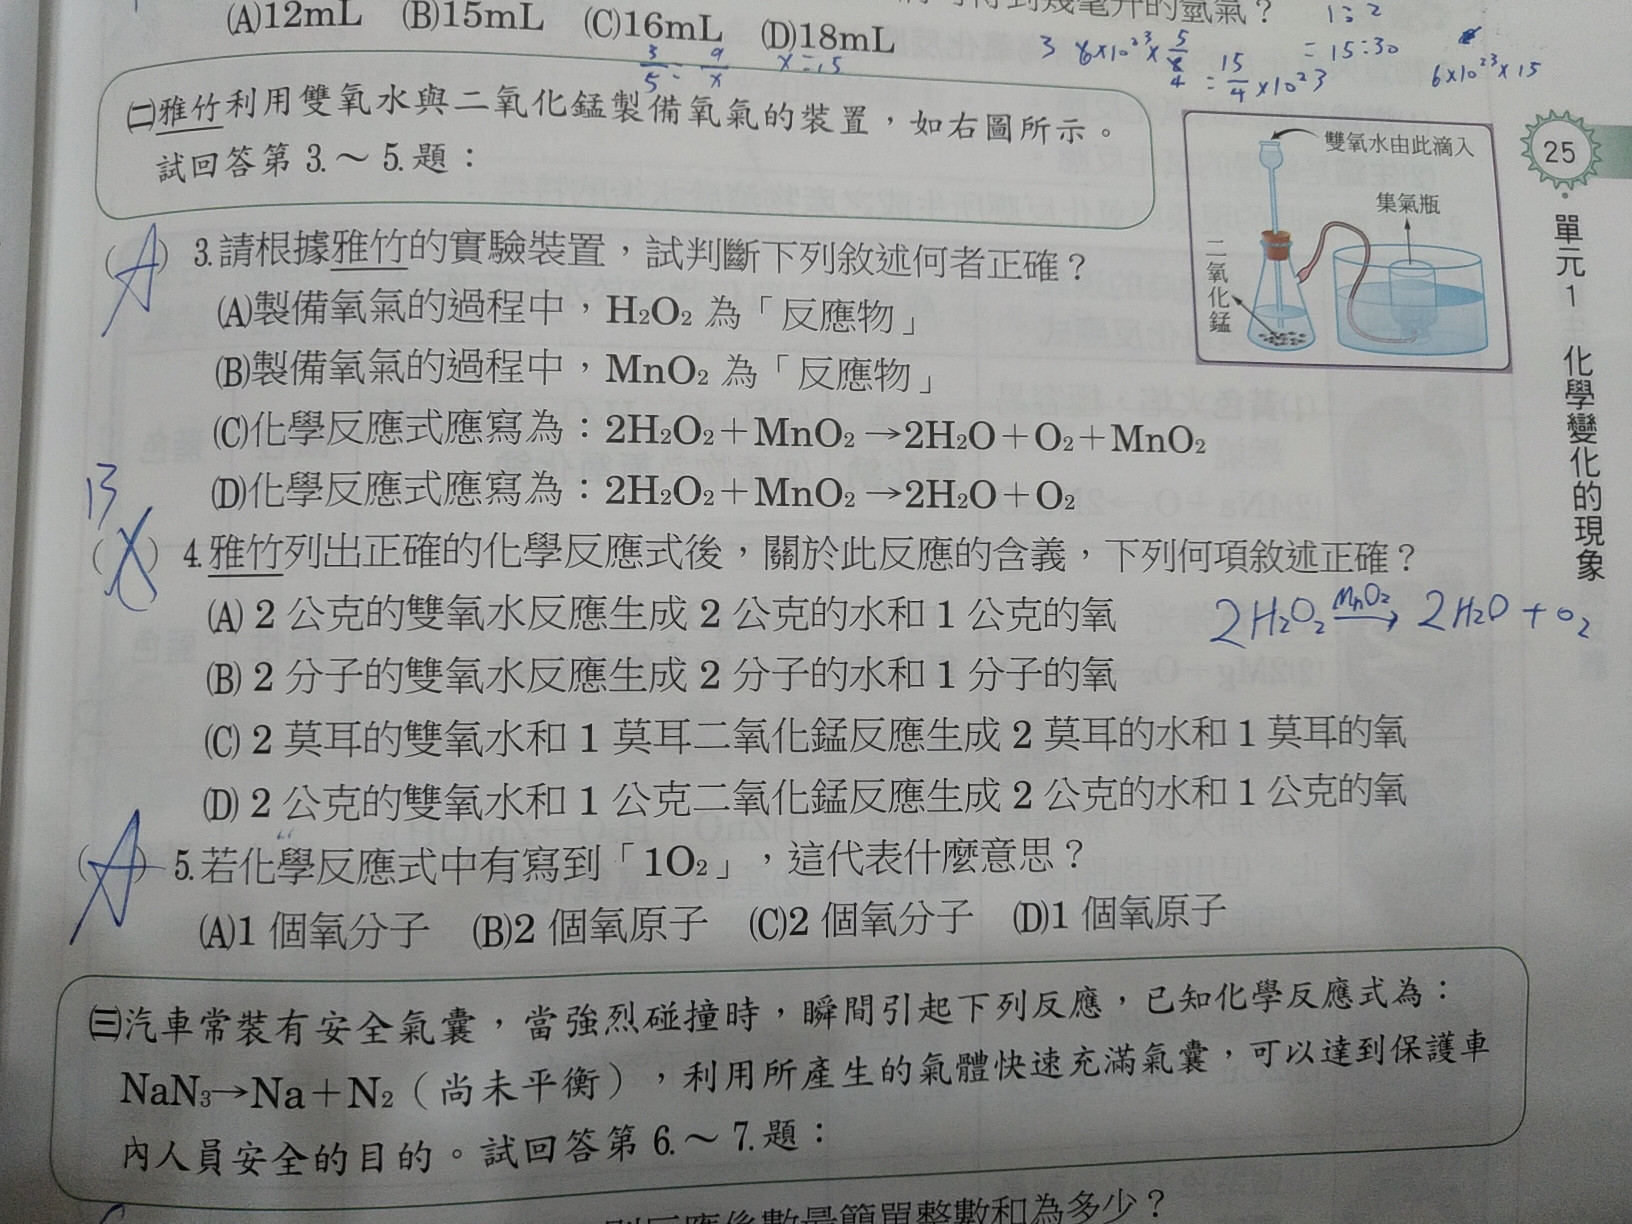 得到幾毫升的氫氣？
(A)12mL (B)15mL (C)16mL (D)18mL
3/5 = 9/x x=15
1:2
=15:30
3 6×10²³×5/8
4
=15/4×10²³
6×10²³×15
㈡雅竹利用雙氧水與二氧化錳製備氧氣的裝置，如右圖所示。
試回答第 3.～5.題：
雙氧水由此滴入
集氣瓶
二氧化錳
25
單元1 化學變化的現象
(A) 3.請根據雅竹的實驗裝置，試判斷下列敘述何者正確？
(A)製備氧氣的過程中，H₂O₂ 為「反應物」
(B)製備氧氣的過程中，MnO₂ 為「反應物」
(C)化學反應式應寫為：2H₂O₂＋MnO₂→2H₂O＋O₂＋MnO₂
(D)化學反應式應寫為：2H₂O₂＋MnO₂→2H₂O＋O₂
B
( ) 4.雅竹列出正確的化學反應式後，關於此反應的含義，下列何項敘述正確？
(A) 2 公克的雙氧水反應生成 2 公克的水和 1 公克的氧
2H₂O₂ MnO₂→ 2H₂O + O₂
(B) 2 分子的雙氧水反應生成 2 分子的水和 1 分子的氧
(C) 2 莫耳的雙氧水和 1 莫耳二氧化錳反應生成 2 莫耳的水和 1 莫耳的氧
(D) 2 公克的雙氧水和 1 公克二氧化錳反應生成 2 公克的水和 1 公克的氧
(A) 5.若化學反應式中有寫到「1O₂」，這代表什麼意思？
(A)1 個氧分子 (B)2 個氧原子 (C)2 個氧分子 (D)1 個氧原子
㈢汽車常裝有安全氣囊，當強烈碰撞時，瞬間引起下列反應，已知化學反應式為：
NaN₃→Na＋N₂（尚未平衡），利用所產生的氣體快速充滿氣囊，可以達到保護車
內人員安全的目的。試回答第 6.～7.題：
則反應係數最簡單整數和為多少？